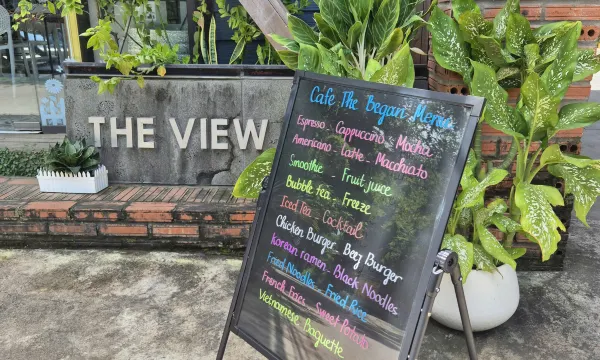 THE VIEW
Cafe The Began Menu
Espresso - Cappuccino - Mocha
Americano - Latte - Macchiato
Smoothie - Fruit juice
Bubble tea - Freeze
Iced Tea - Cocktail
Chicken Burger - Beef Burger
Korean ramen - Black Noodles
Fried Noodles - Fried Rice
French Fries - Sweet Potato
Vietnamese Baguette